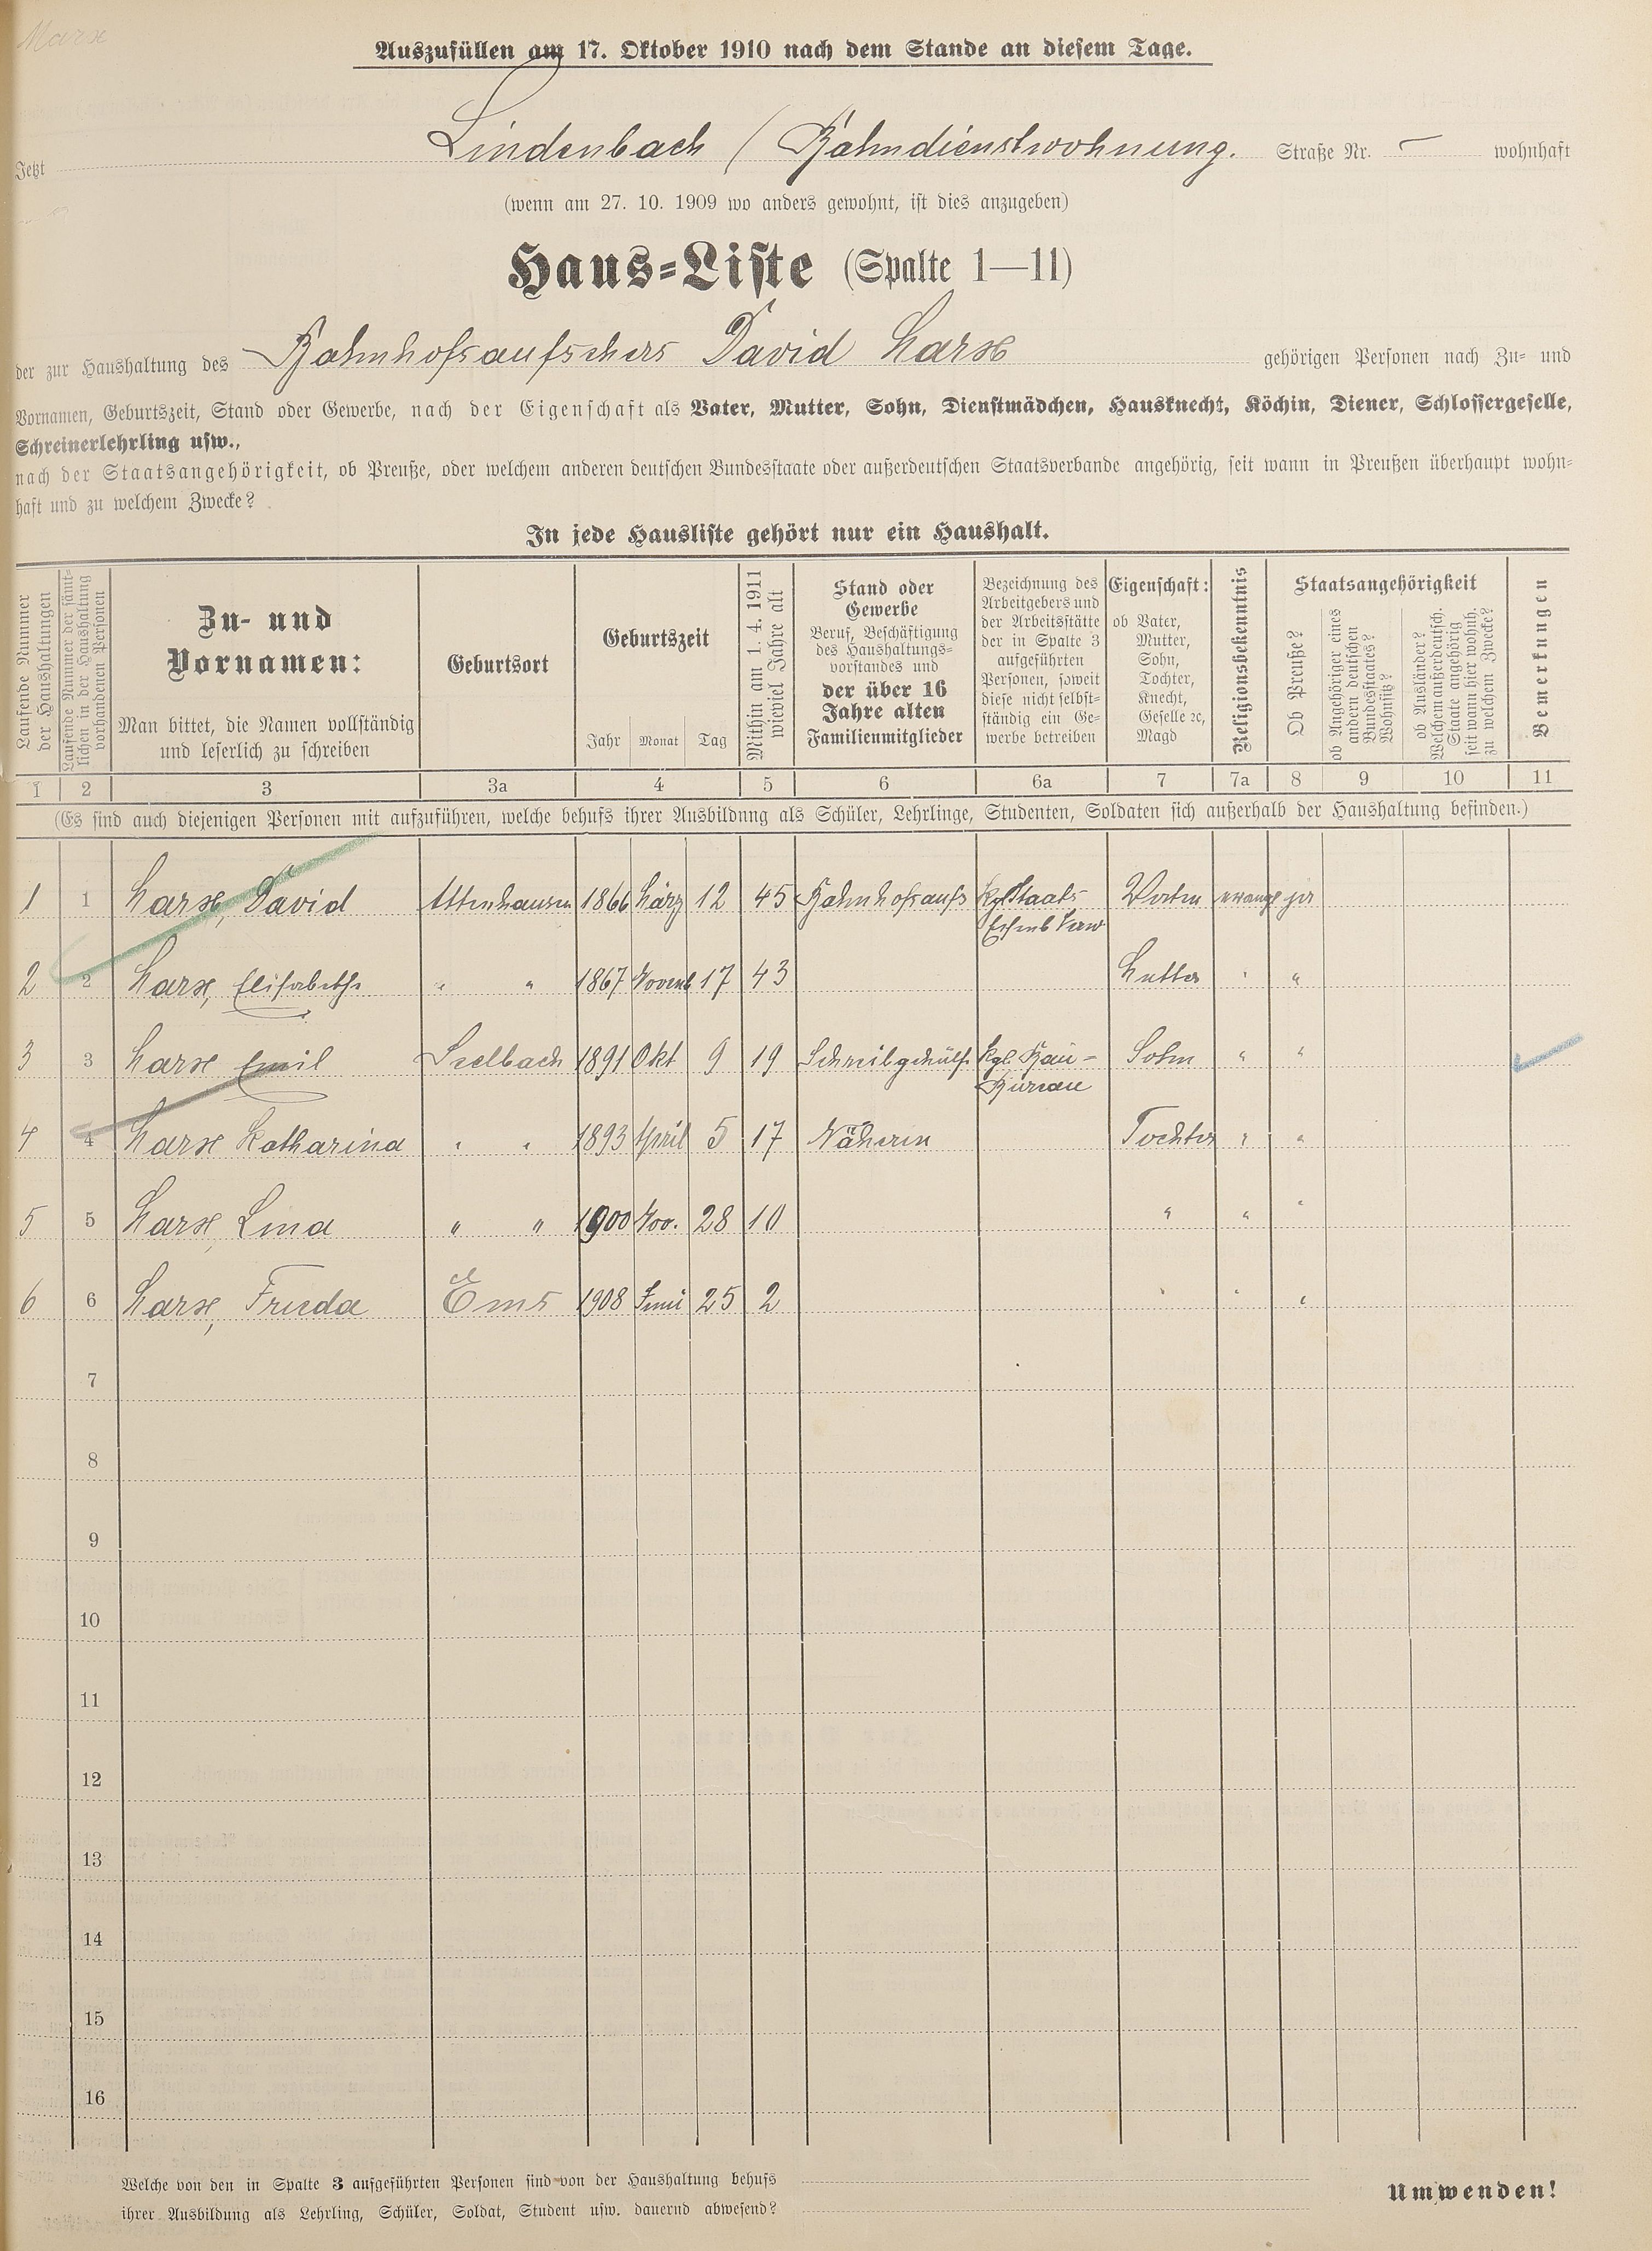 Marx
Auszufüllen am 17. Oktober 1910 nach dem Stande an diesem Tage.
Jetzt Lindenbach / Bahndienstwohnung. Straße Nr. – wohnhaft
(wenn am 27. 10. 1909 wo anders gewohnt, ist dies anzugeben)
Haus-Liste (Spalte 1—11)
der zur Haushaltung des Bahnhofsaufsehers David Marx gehörigen Personen nach Zu- und
Vornamen, Geburtszeit, Stand oder Gewerbe, nach der Eigenschaft als Vater, Mutter, Sohn, Dienstmädchen, Hausknecht, Köchin, Diener, Schlossergeselle,
Schreinerlehrling usw.,
nach der Staatsangehörigkeit, ob Preuße, oder welchem anderen deutschen Bundesstaate oder außerdeutschen Staatsverbande angehörig, seit wann in Preußen überhaupt wohn-
haft und zu welchem Zwecke?
In jede Hausliste gehört nur ein Haushalt.
Laufende Nummer der Haushaltungen
Laufende Nummer der sämt-
lichen in der Haushaltung
vorhandenen Personen
Zu- und
Vornamen:
Man bittet, die Namen vollständig
und leserlich zu schreiben
Geburtsort
Geburtszeit
Jahr Monat Tag
Mithin am 1. 4. 1911
wieviel Jahre alt
Stand oder
Gewerbe
Beruf, Beschäftigung
des Haushaltungs-
vorstandes und
der über 16
Jahre alten
Familienmitglieder
Bezeichnung des
Arbeitgebers und
der Arbeitsstätte
der in Spalte 3
aufgeführten
Personen, soweit
diese nicht selbst-
ständig ein Ge-
werbe betreiben
Eigenschaft:
ob Vater,
Mutter,
Sohn,
Tochter,
Knecht,
Geselle ꝛc,
Magd
Religionsbekenntnis
Staatsangehörigkeit
Ob Preuße?
ob Angehöriger eines
andern deutschen
Bundesstaates?
Wohnsitz?
ob Ausländer?
Welchem außerdeutsch.
Staate angehörig
seit wann hier wohnh.
zu welchem Zwecke?
Bemerkungen
1 2 3 3a 4 5 6 6a 7 7a 8 9 10 11
(Es sind auch diejenigen Personen mit aufzuführen, welche behufs ihrer Ausbildung als Schüler, Lehrlinge, Studenten, Soldaten sich außerhalb der Haushaltung befinden.)
1 1 Marx, David Attenhausen 1866 März 12 45 Bahnhofsaufs Kgl Staats Vater evangl ja
Eisenb Verw
2 2 Marx, Elisabetha " " 1867 Novemb 17 43 Mutter " "
3 3 Marx Emil Seelbach 1891 Okt 9 19 Schreibgehülfe Kgl. Bau- Sohn " "
Bureau
4 4 Marx Katharina " " 1893 April 5 17 Näherin Tochter " "
5 5 Marx, Lina " " 1900 Nov. 28 10 " " "
6 6 Marx, Frieda Ems 1908 Juni 25 2 " " "
7
8
9
10
11
12
13
14
15
16
Welche von den in Spalte 3 aufgeführten Personen sind von der Haushaltung behufs
ihrer Ausbildung als Lehrling, Schüler, Soldat, Student usw. dauernd abwesend?
Umwenden!